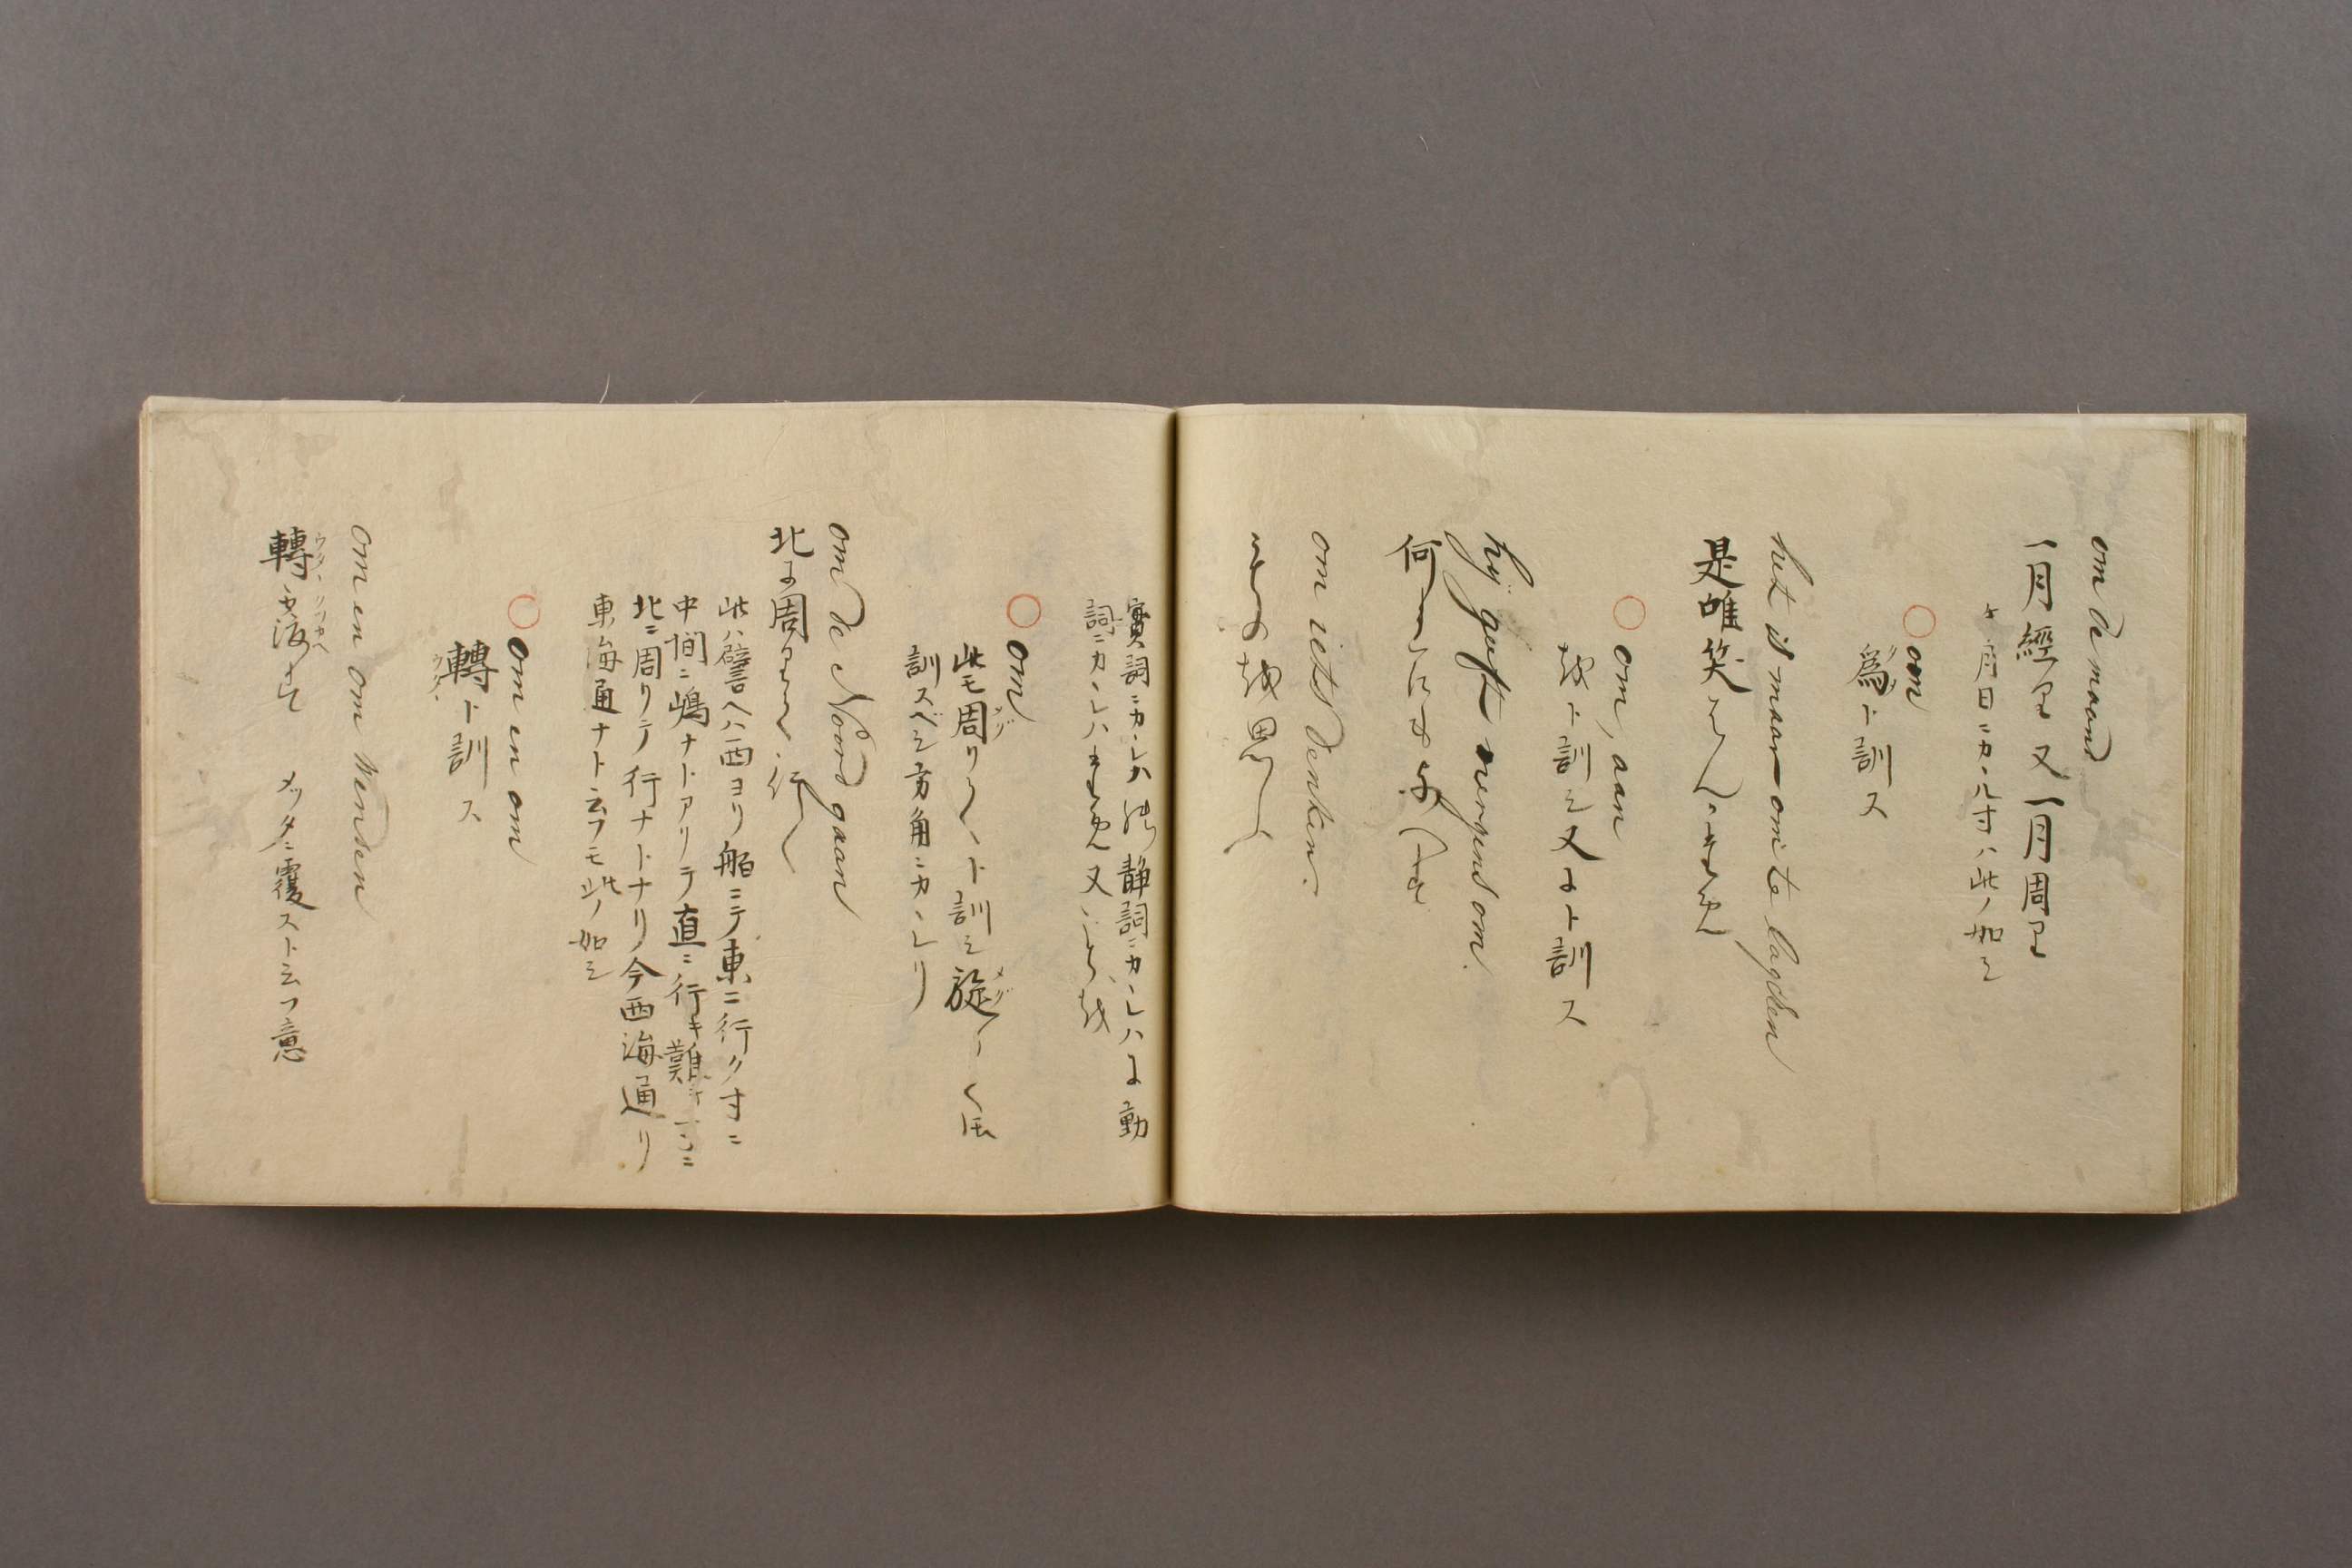 om de maand
一月經里又一月周里
ヶ月日ニカヽル寸ハ此ノ如シ
om
爲ト訓ス
het is maar om te lagchen
是唯笑
om, aan
越ト訓シ又よト訓ス
hij geeft nergens om.
何 にも 与へ
om iets denken.
越思ふ
實詞ニカヽレハ 静詞ニカヽレハよ動
詞ニカヽレハ 又 越
om
此モ周リ〱ト訓シ旋 〱 
訓スベシ方角ニカヽレリ
om de Noord gaan
北よ周里〱行く
此ハ譬ヘハ西ヨリ舶ニテ東ニ行ク寸ニ
中間ニ嶋ナトアリテ直ニ行キ難キ ニ
北ニ周リテ行ナトナリ今西海通リ
東海通ナト云フモ此ノ如シ
om en om
轉ト訓ス
om en om wenden
轉 メッタニ覆ストニ云フ意